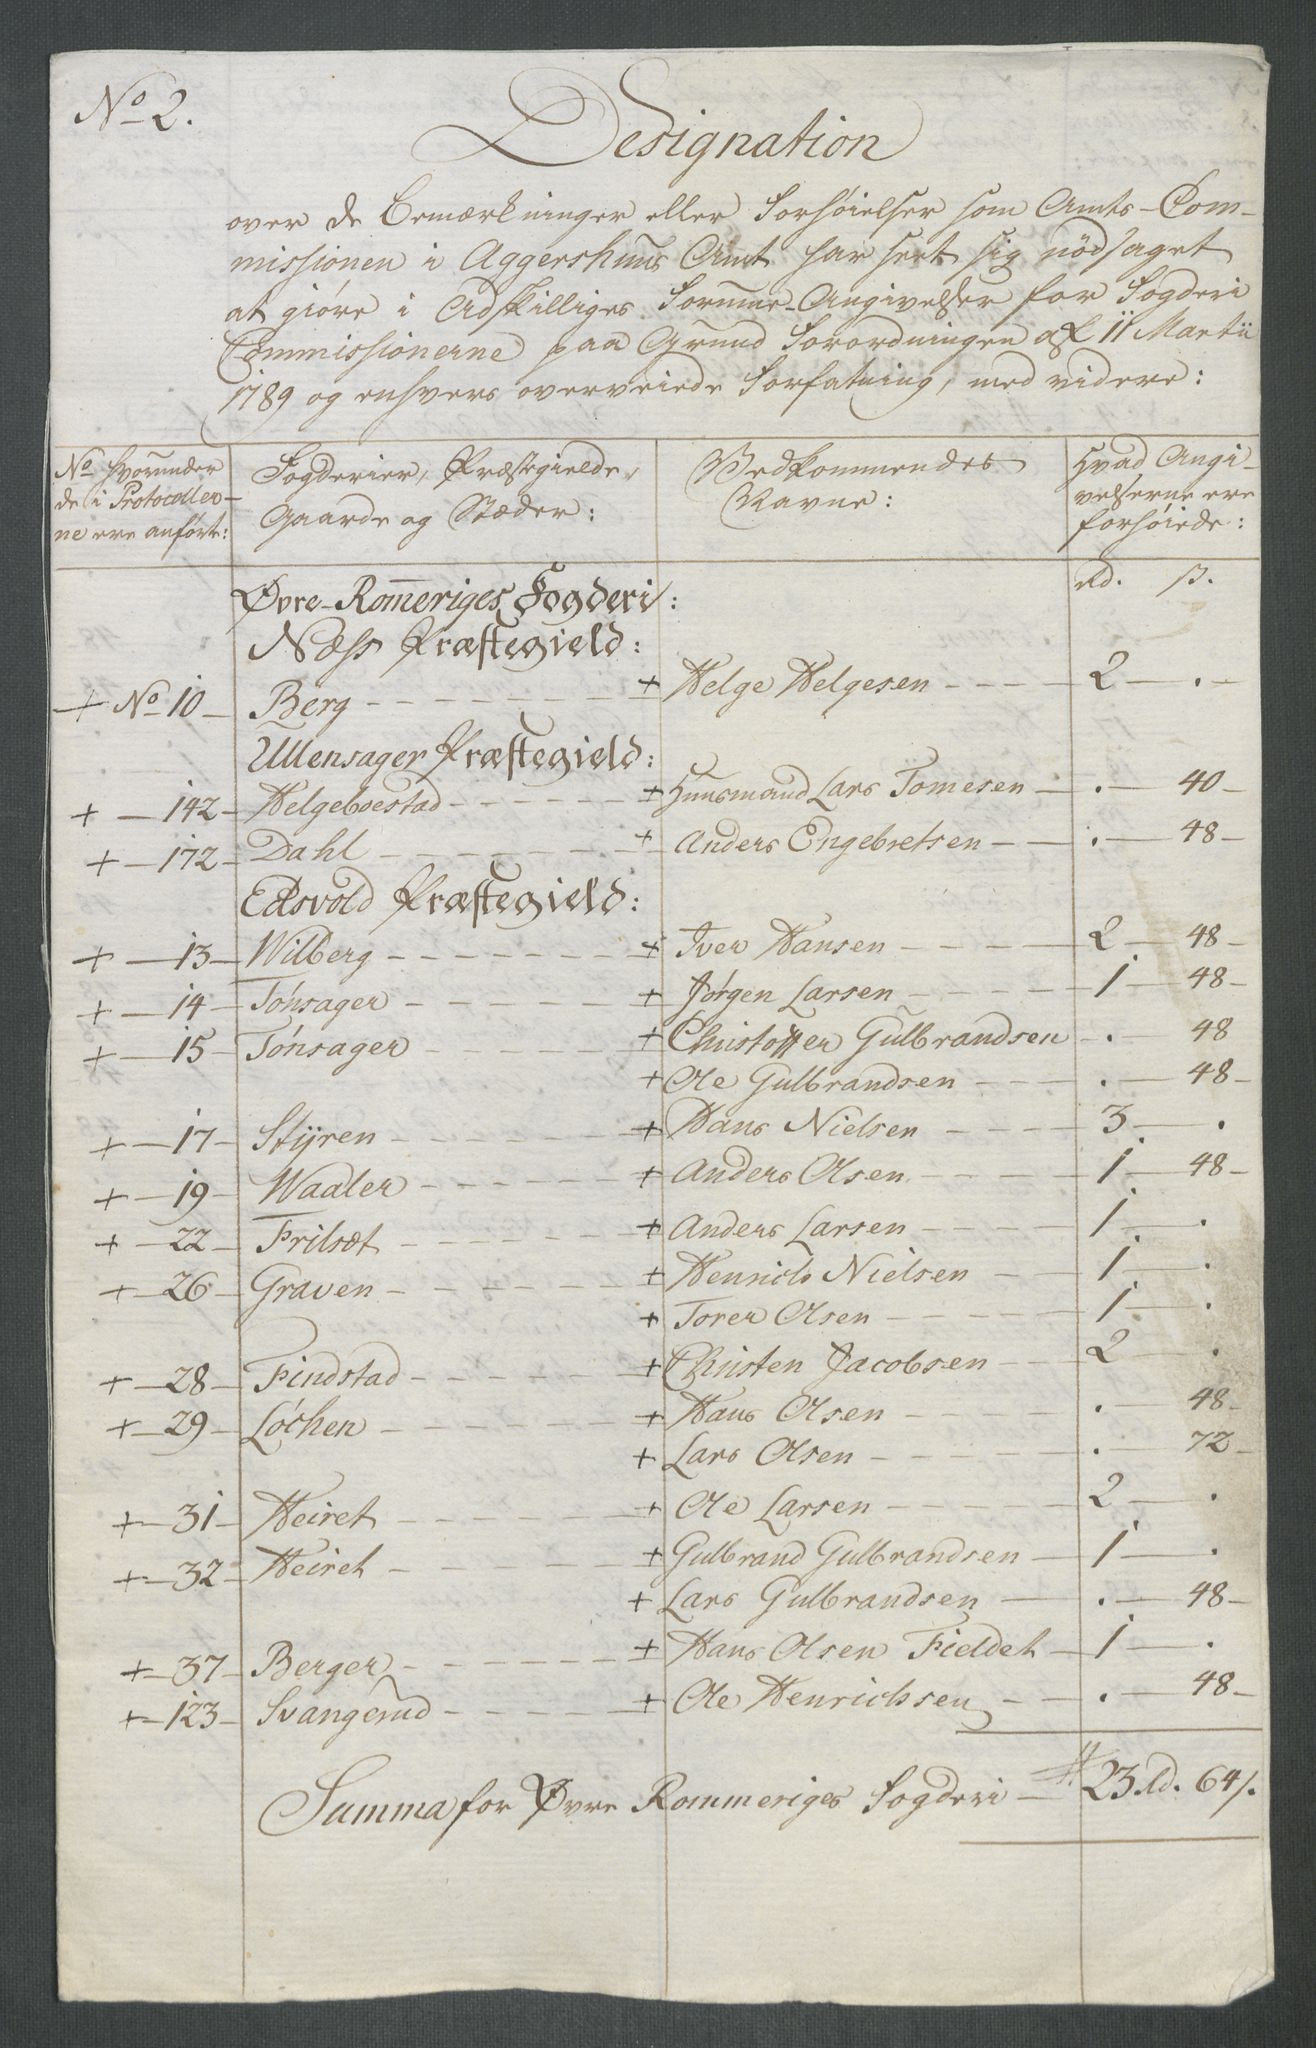 No 2.
Designation
over de Bemærkninger eller Forhøielser som Amts-Com-
missionen i Aggershuus Amt har seet sig nødsaget
at giøre i Adskilliges Formue-Angivelser for Fogderi
Commissionerne paa Grund Forordningen af 11 Martii
1789 og enhvers overveiede Forfatning, med videre:
No hvorunder
de i Protocoller-
ne ere anførte:
Fogderier, Præstegielde,
Gaarde og Stæder:
Vedkommendes
Navne:
Hvad Angi-
velserne ere
forhøiede:
Rd. ß.
Øvre-Rom̄eriges Fogderi:
Næss Præstegield:
+ No 10 Berg + Helge Helgesen 2 .
Ullensager Præstegield:
+ 142 Helgeboestad + Huusmand Lars Tomesen . 40
+ 172 Dahl + Anders Engebretsen . 48
Edsvold Præstegield:
+ 13 Wilberg + Iver Hansen 2 48
+ 14 Tønsager + Jørgen Larsen 1 48
+ 15 Tønsager + Christoffer Gulbrandsen . 48
+ Ole Gulbrandsen . 48
+ 17 Styren + Hans Nielsen 3 .
+ 19 Waaler + Anders Olsen 1 48
+ 22 Frilsæt + Anders Larsen 1 .
+ 26 Graven + Henrich Nielsen 1 .
+ Torer Olsen 1 .
+ 28 Findstad + Christen Jacobsen 2 .
+ 29 Løchen + Hans Olsen . 48
+ Lars Olsen . 72
+ 31 Heiret + Ole Larsen 2 .
+ 32 Heiret + Gulbrand Gulbrandsen 1 .
+ Lars Gulbrandsen . 48
+ 37 Berger + Hans Olsen Fieldet 1 .
+ 123 Svangerud + Ole Henrichsen . 48
Summa for Øvre Rommeriges Fogderi 23 Rd. 64 ß.